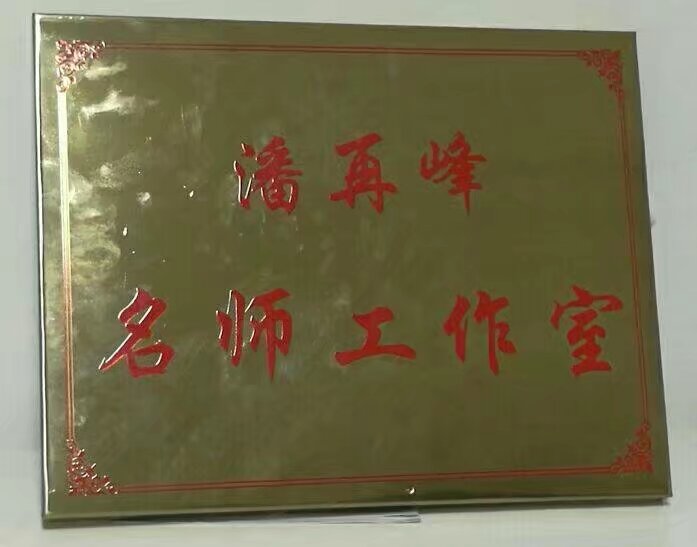 潘再峰
名师工作室